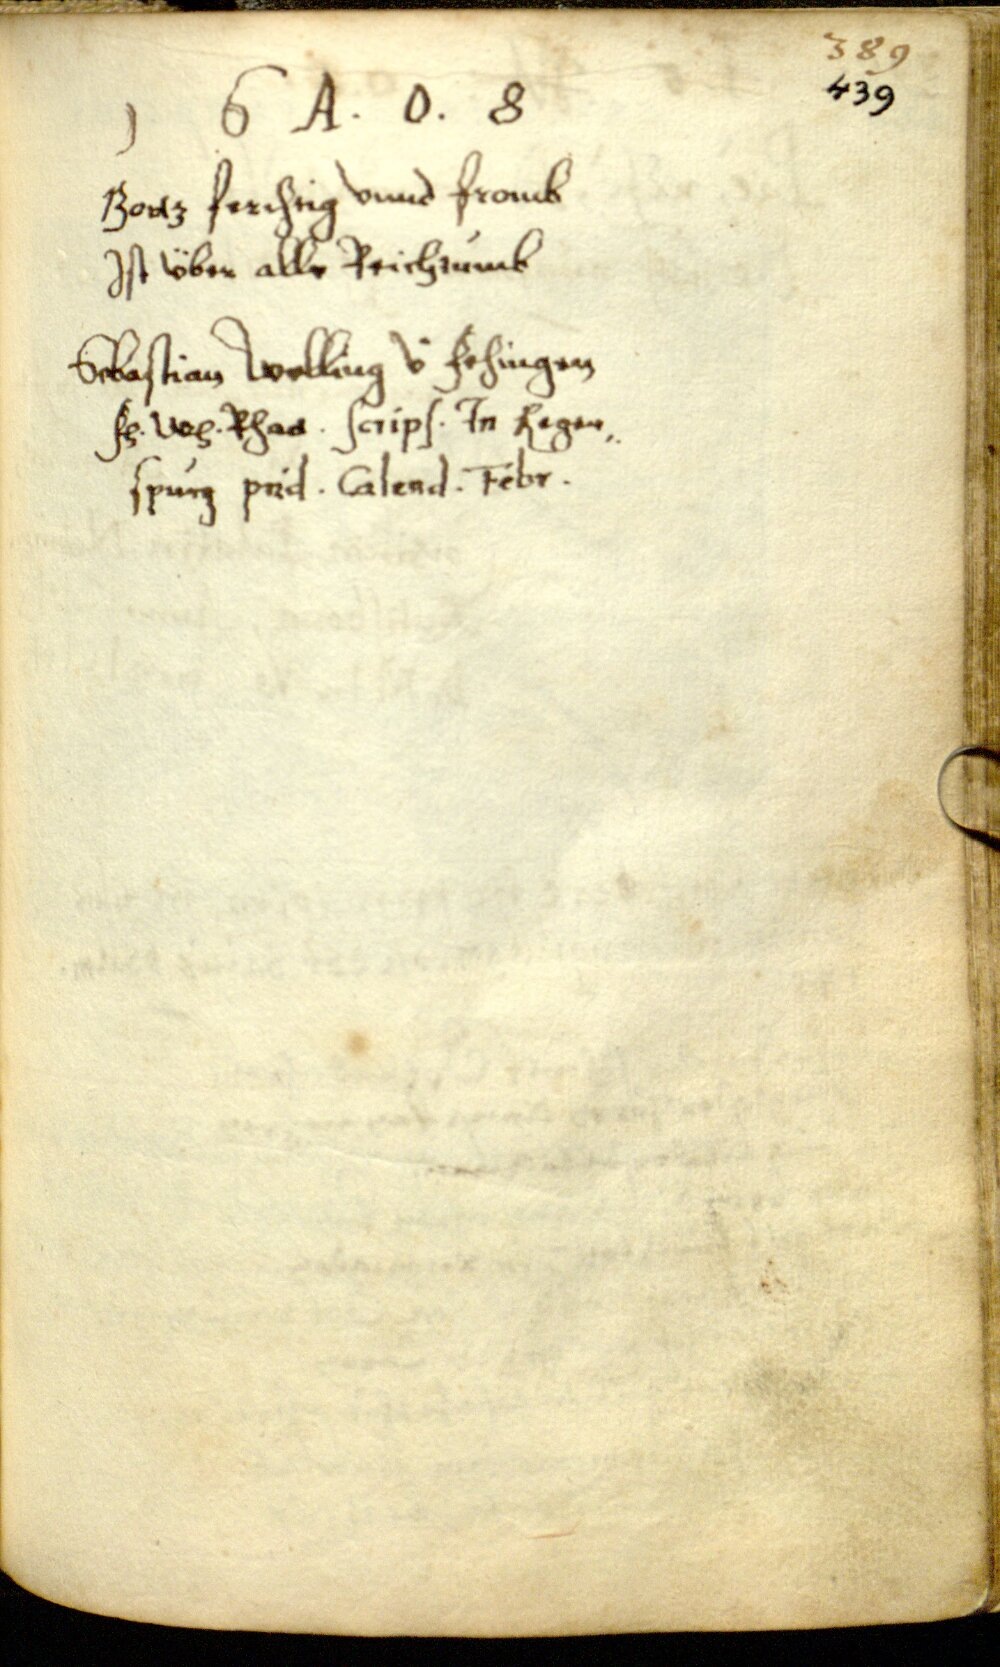 389
439
1 6 A. O. 8
Gottz ferchtig vnnd fromb
Ist über alle Reichtumb
Sebastian Welling v̈ Fehingen
fr. Rhat. scrips. In Regen„
spurg prid. Calend. Febr.